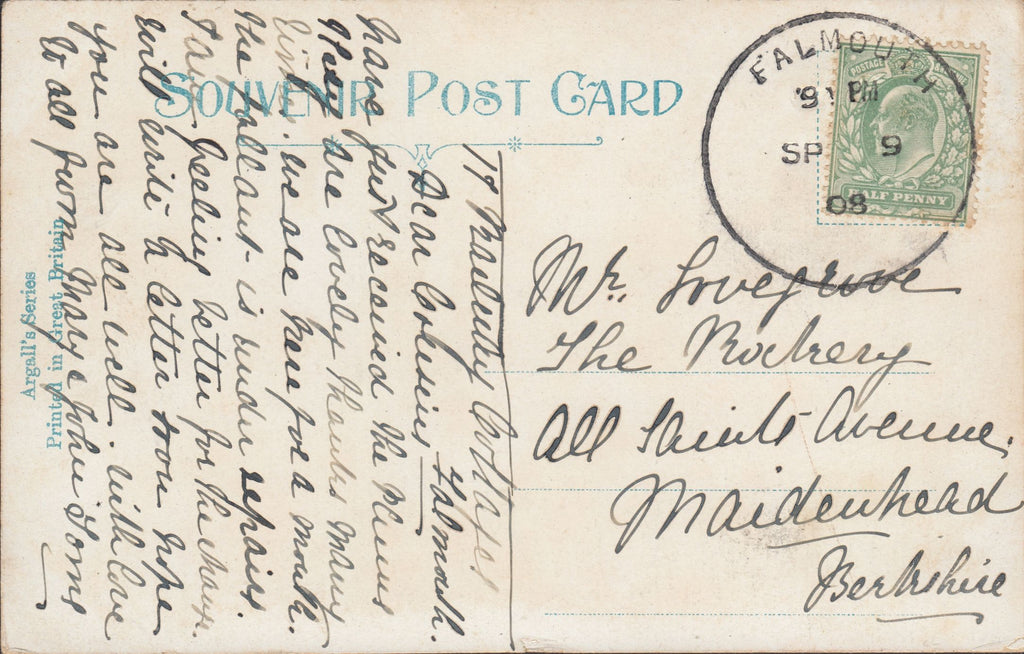 SOUVENIR POST CARD
FALMOUTH
9 PM
SP 9
08
POSTAGE
HALF PENNY
Mr. Lovegrove
The Rockery
All Saints Avenue.
Maidenhead
Berkshire
17 Cottages
Falmouth.
Dear Cousins
have just received the Plums
they are lovely thanks many
we are here for a month.
the is under repairs.
I am feeling better for the change.
will write a letter soon hope
you are all well. with love
to all from Mary & John Toms
Argall's Series
Printed in Great Britain